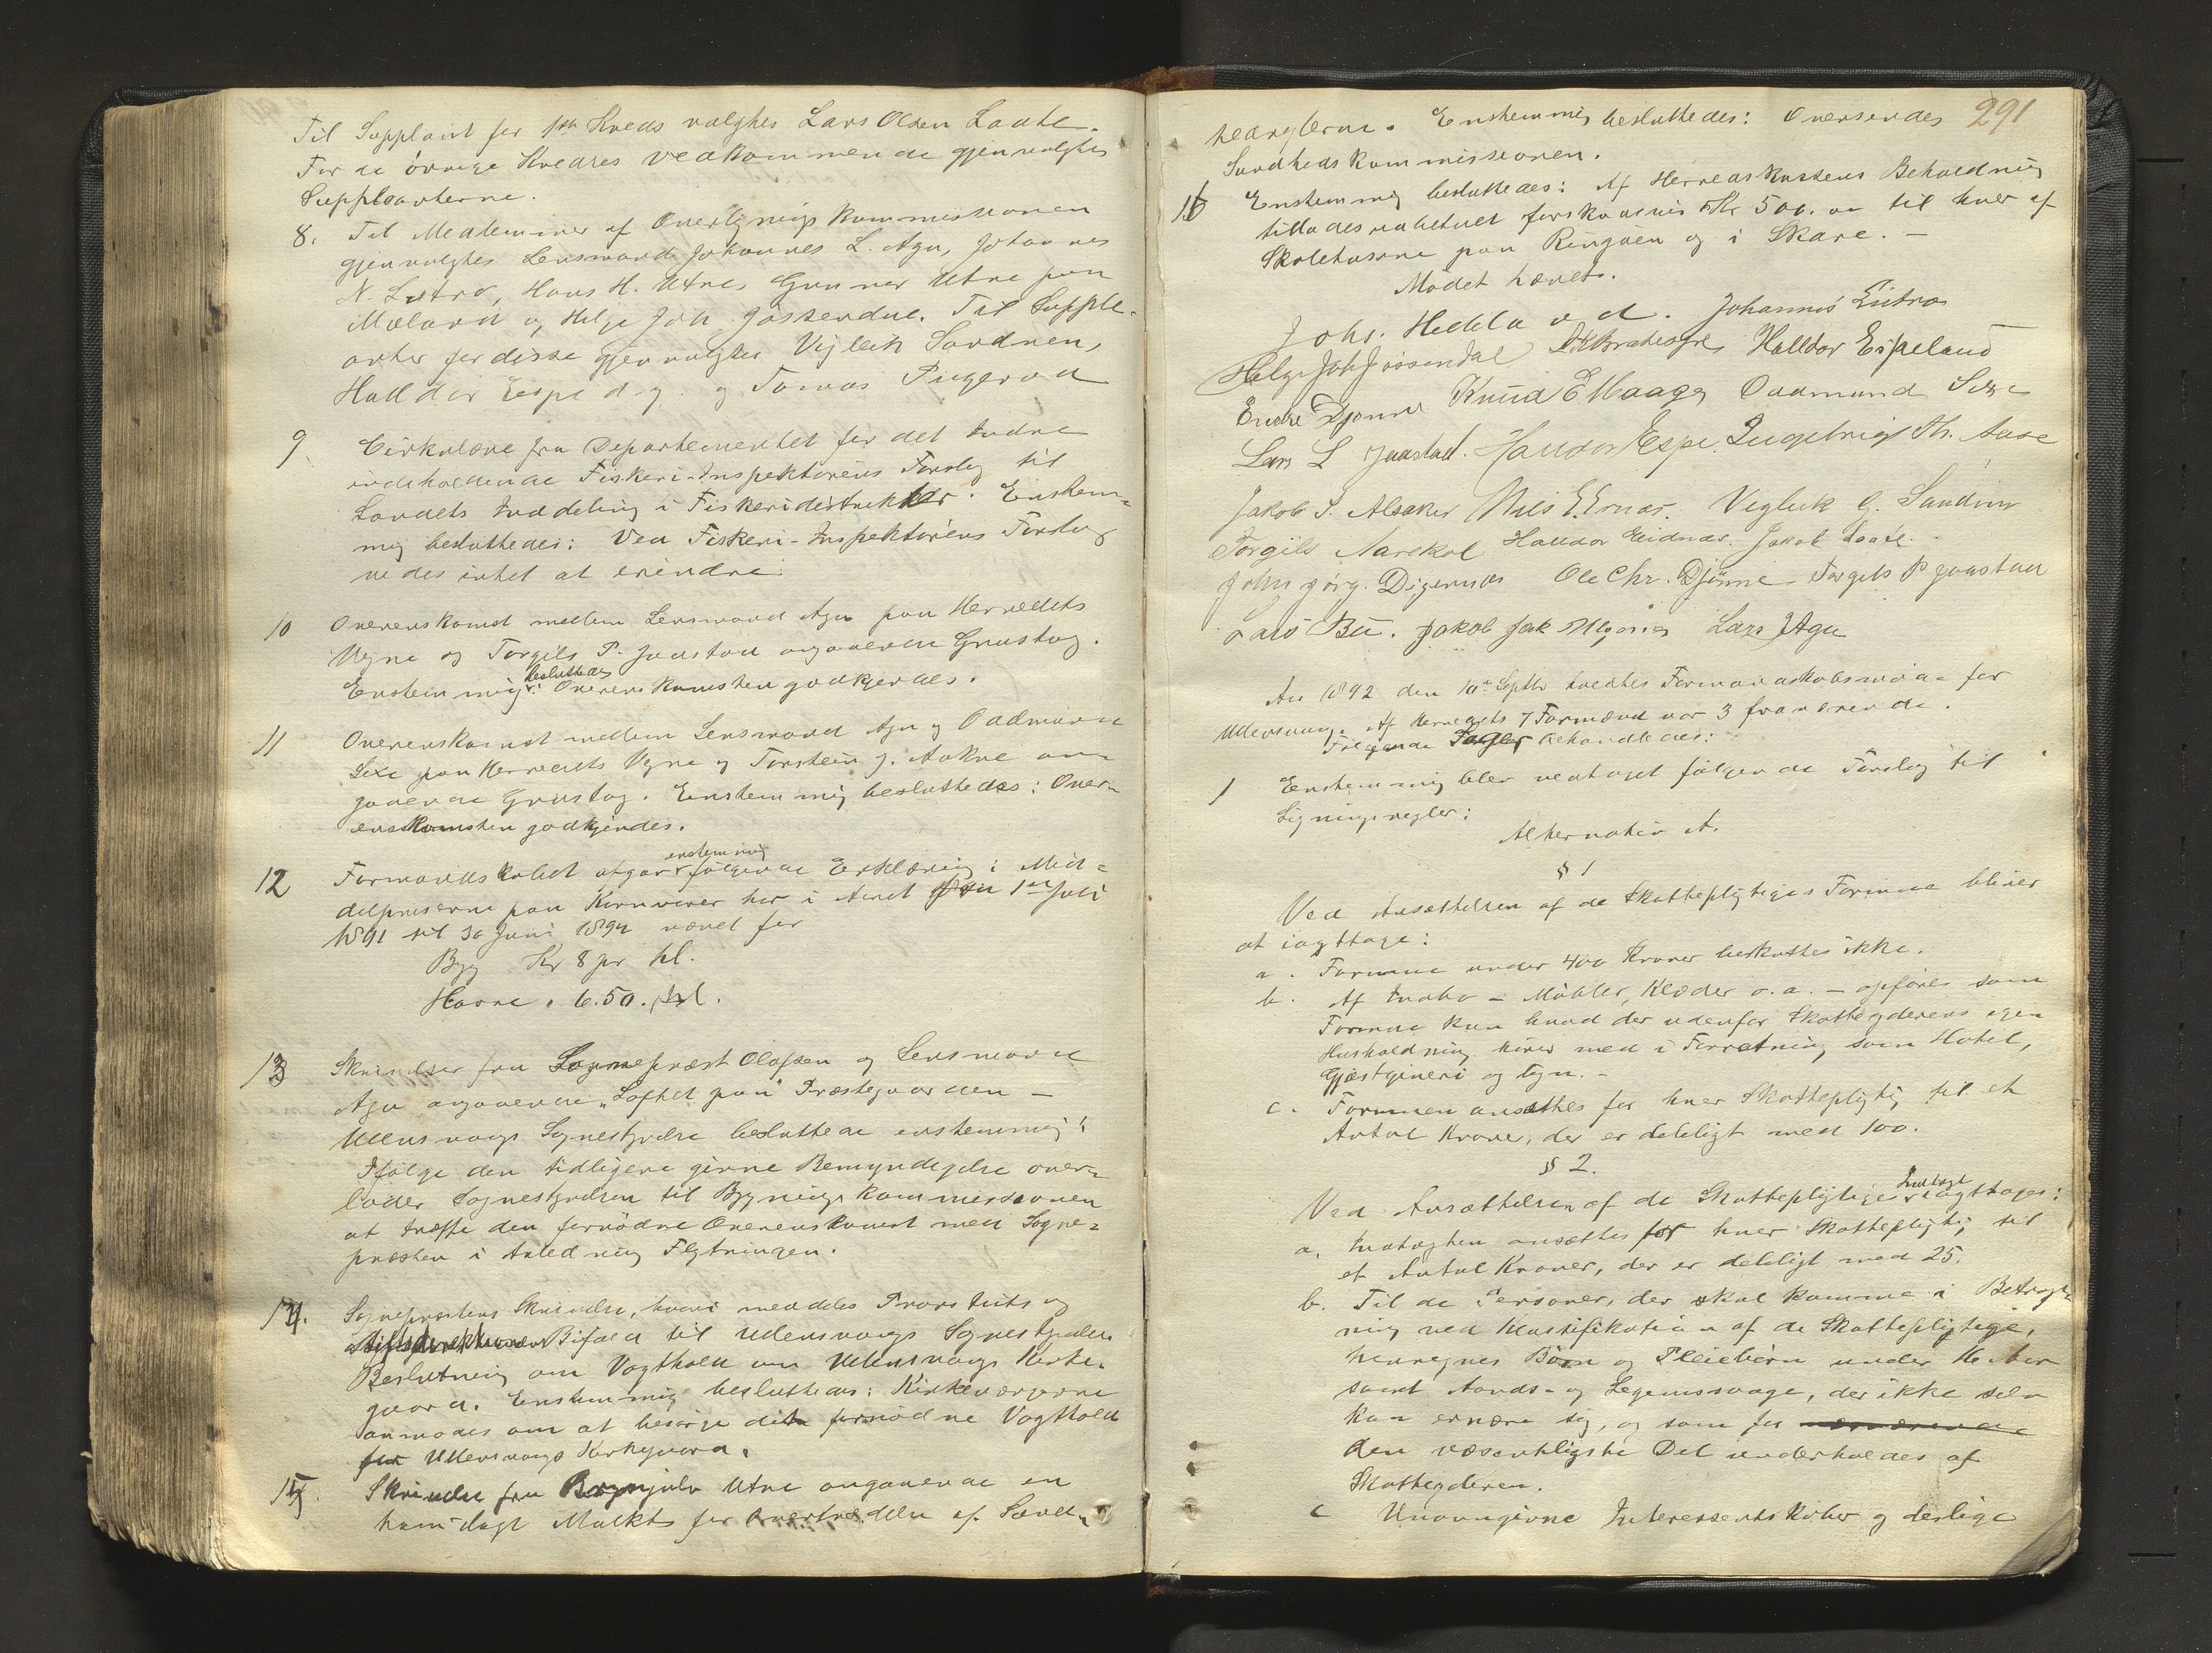 Til Supplant for 1ste Kreds valgtes Lars Olsen Laate.
For de övrige Kredses vedkommende gjenvalgtes
Supplanterne.
8. Til Medlemmer af Overligningskommissionen
gjenvalgtes Lensmand Johannes L. Aga, Johannes
N. Lutro, Hans H. Utne, Gunnar Utne paa
Mæland og Helge Joh. Jössendal. Til Supple-
anter for disse gjenvalgtes Vigleik Sandven,
Halldor Espe d.y. og Tomas
9. Cirkulære fra Departementet for det Indre
indeholdende Fiskeri-Inspektörens Forslag til
Landets Inddeling i Fiskeridistrikter. Enstem-
mig besluttedes: Ved Fiskeri-Inspektörens Forslag
vides intet at erindre.
10 Overenskomst mellem Lensmand Aga paa Herredets
Vegne og Torgils P. Jaastad angaaende Grustag.
Enstemmig besluttedes: Overenskomsten godkjendes.
11 Overenskomst mellem Lensmand Aga og Oadmund
Sexe paa Herredets Vegne og Torstein J. Aakne an-
gaaende Grustag. Enstemmig besluttedes: Over-
enskomsten godkjendes.
12 Formandskabet afgav enstemmig følgende Erklæring: Mid-
delpriserne paa Kornvarer har i Aaret fra 1ste Juli
1891 til 30 Juni 1892 været for
Byg Kr 8 pr hl.
Havre " 6.50. " hl.
13 Skrivelser fra Sogneprest Olafsen og Lensmand
Aga angaaende "Loftet paa" Præstegaarden –
Ullensvangs Sognestyrelse besluttede enstemmig:
Ifølge den tidligere givne Bemyndigelse over-
lader Sognestyrelsen til Bygningskommissionen
at træffe den fornödne Overenskomst med Sogne-
præsten i Anledning Flytningen.
14. Sogneprestens Skrivelse, hvori meddeles Provstiets og
Stiftsdirektionens Bifald til Ullensvangs Sognestyrelses
Beslutning om Vagthold om Ullensvangs Kirke-
gaard. Enstemmig besluttedes: Kirkeværgerne
anmodes om at besørge det fornödne Vagthold
for Ullensvangs Kirkegaard.
15. Skrivelse fra Brynjulv Utne angaaende en
ham ilagt Mulkt for Overtrædelse af Sund-
291
hedsreglerne. Enstemmig besluttedes: Oversendes
Sundhedskommissionen.
16 Enstemmig besluttedes: Af Herredskassens Beholdning
tillades udbetalt forskudsvis Kr 500.00 til hver af
Skolehusene paa Ringöen og i Skare. –
Mödet hævet.
Johs. Hedda Johannes Lutro
Helge Joh Jøssendal Halldor Espeland
Endre Djønne Knud E Maage Oadmund Sexe
Lars L Jaastad. Halldor Espe. Ingebrigt Th. Aase
Jakob J. Alsaker Nils E. Ernæs. Vigleik G. Sandven
Torgils Aarekol Halldor Eidnæs. Jakob Laate.
John Jörg. Digernæs Ole Chr. Djönne Torgils P Jaastad
Lars Bu. Jakob Jak Lars J Aga
Aar 1892 den 10de Septbr holdtes Formandskabsmöde for
Ullensvang. Af Herredets 7 Formænd var 3 fraværende.
Følgende Sager behandledes:
1 Enstemmig blev vedtaget følgende Forslag til
Ligningsregler:
Alternativ A.
§ 1
Ved Ansættelsen af de Skattepligtiges Formue bliver
at iagttage:
a. Formue under 400 Kroner beskattes ikke.
b. Af Indbo – Möbler, Klæder o.a. – opføres som
Formue kun hvad der udenfor Skatteyderens egen
Husholdning hører med i Forretning som Hotel,
Gjæstgiveri og lign. –
c. Formuen ansættes for hver Skattepligtig til et
Antal Kroner, der er deleligt med 100.
§ 2.
Ved Ansættelsen af de Skattepligtiges Indtægt iagttages:
a. Indtægten ansættes for hver Skattepligtig til
et Antal Kroner, der er deleligt med 25.
b. Til de Personer, der skal komme i Betragt-
ning ved Klassifikation af de Skattepligtige,
henregnes Börn og Pleiebörn under 16 Aar
samt Aands- og Legemssvage, der ikke selv
kan ernære sig, og som for
den væsentligste Del underholdes af
Skatteyderen.
c Unavngivne Interessentskaber og deslige